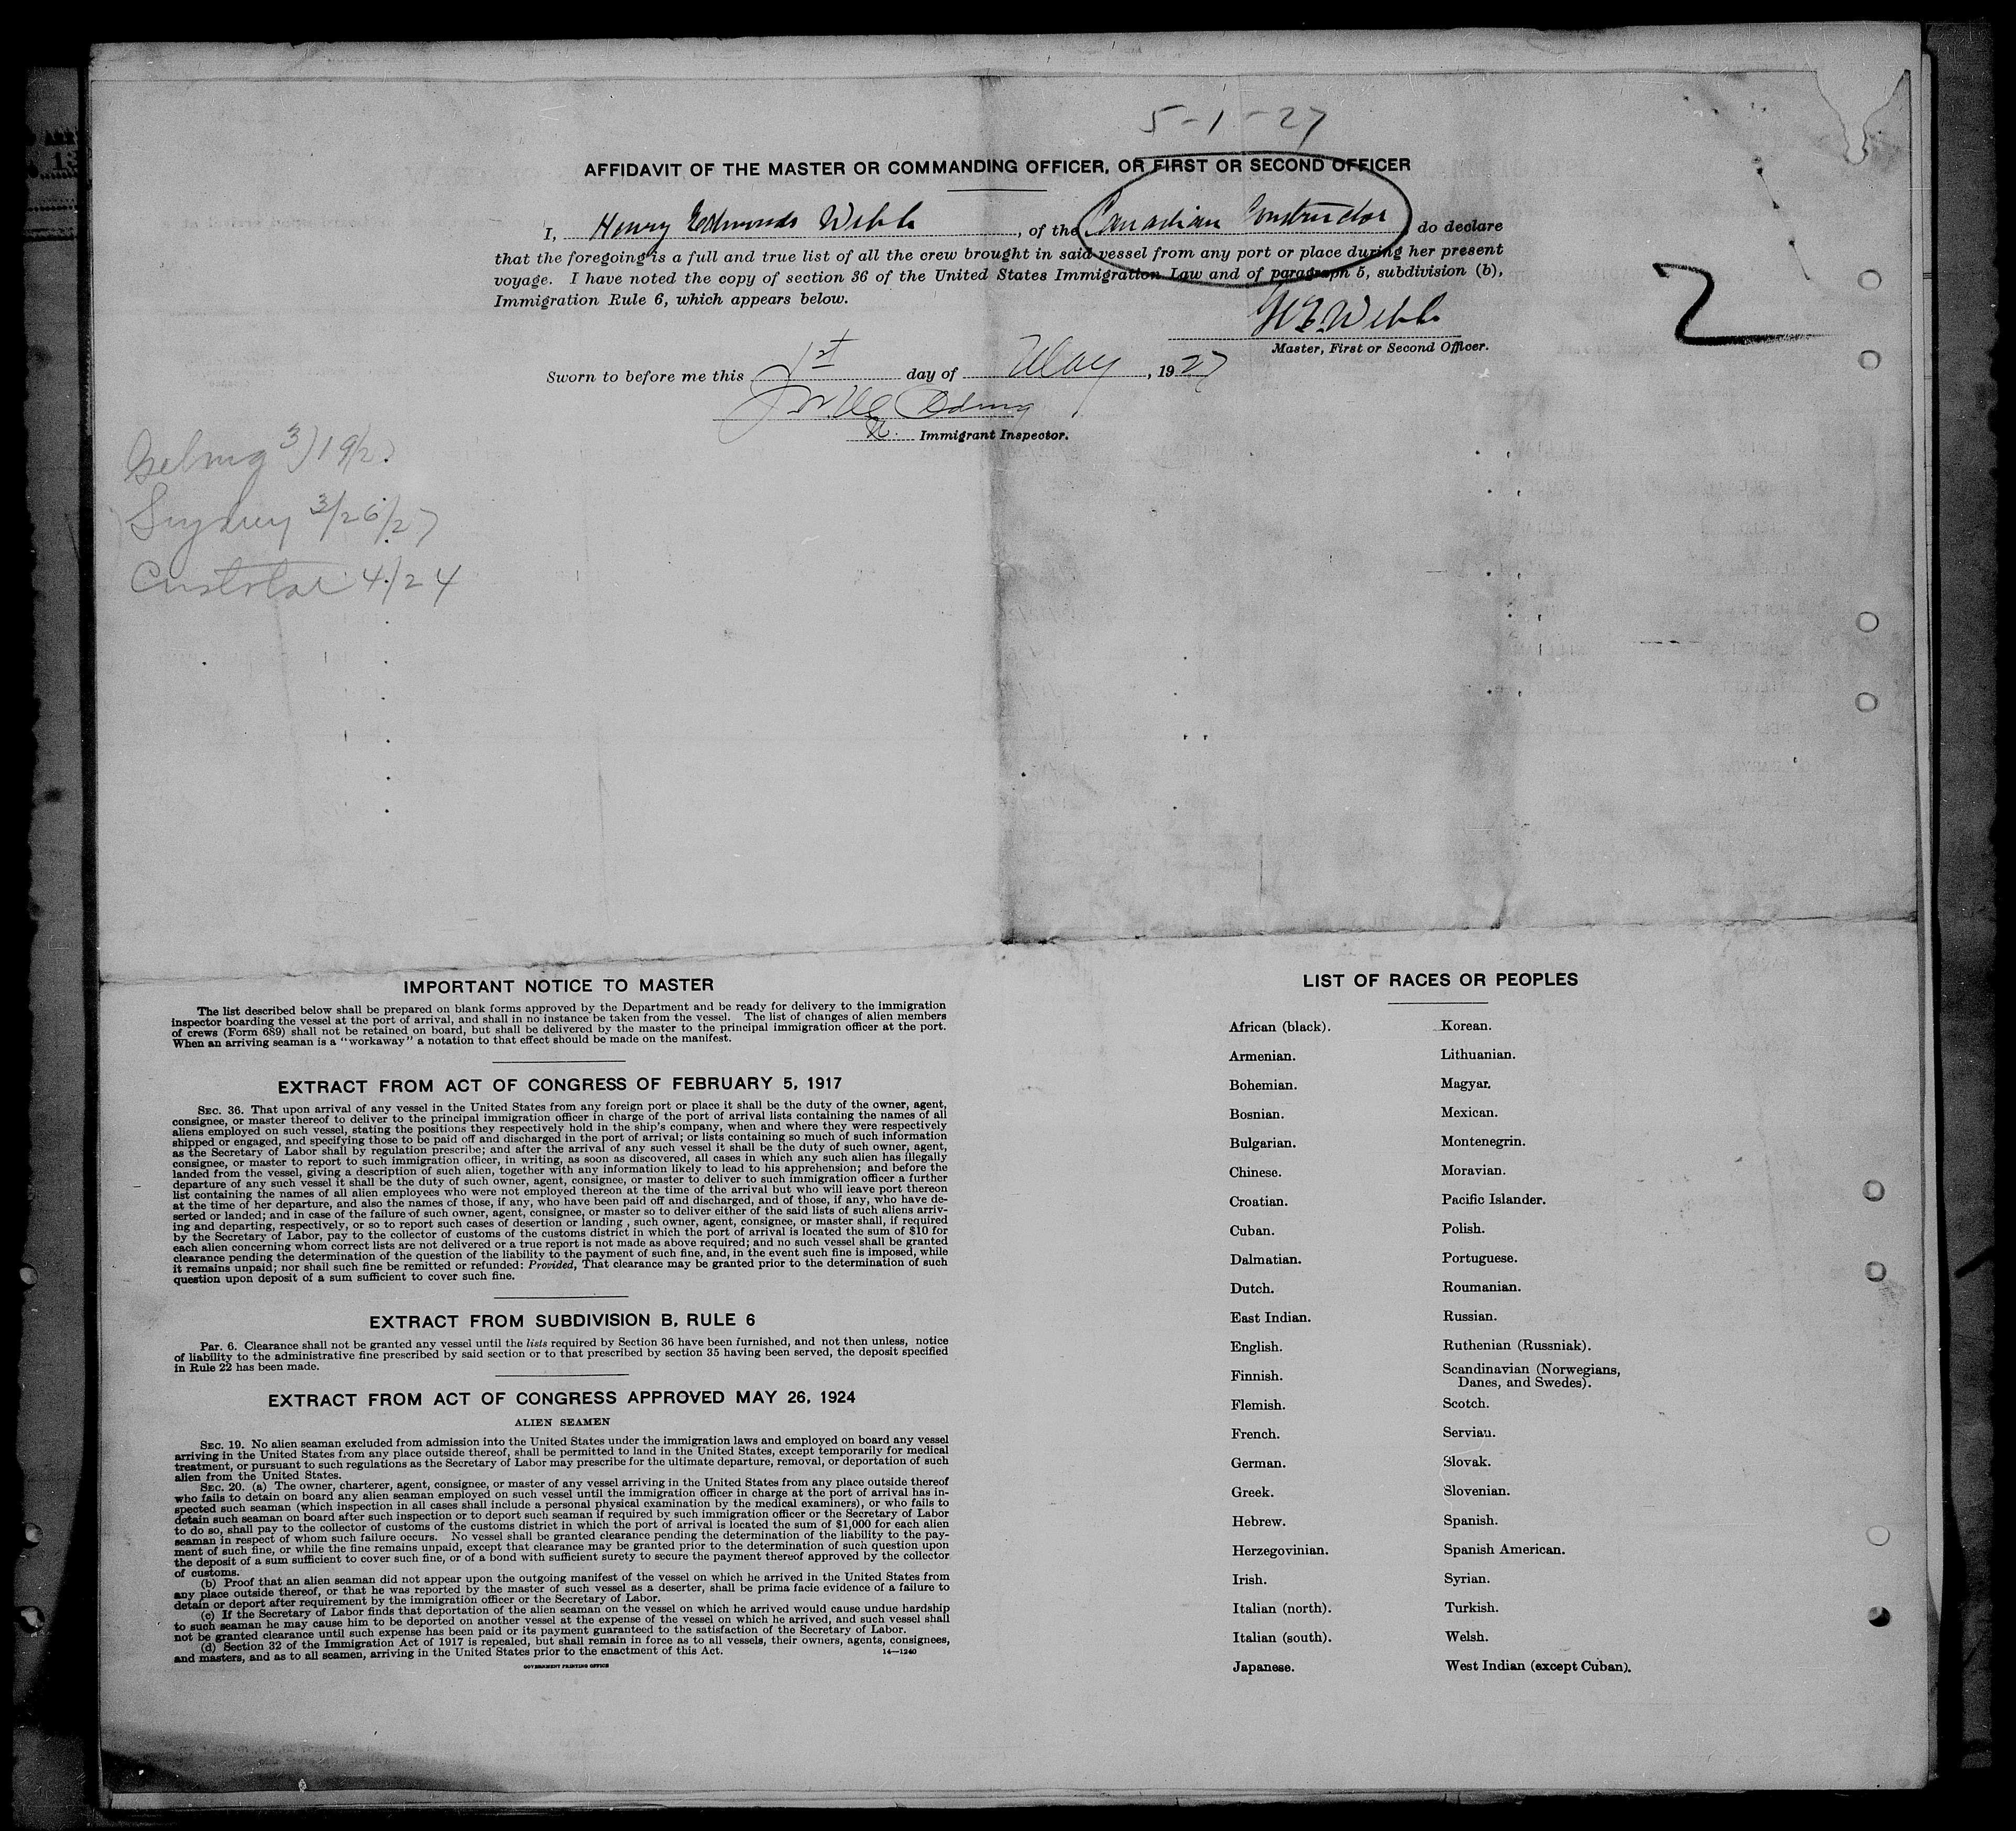 5-1-27
AFFIDAVIT OF THE MASTER OR COMMANDING OFFICER, OR FIRST OR SECOND OFFICER
I, Henry Edmonds Webb, of the Canadian Constructor do declare
that the foregoing is a full and true list of all the crew brought in said vessel from any port or place during her present
voyage. I have noted the copy of section 36 of the United States Immigration Law and of paragraph 5, subdivision (b),
Immigration Rule 6, which appears below.
2
H E Webb
Master, First or Second Officer.
Sworn to before me this 1st day of May, 1927
Immigrant Inspector.
3/19/27
Sydney 3/26/27
4/24
IMPORTANT NOTICE TO MASTER
The list described below shall be prepared on blank forms approved by the Department and be ready for delivery to the immigration
inspector boarding the vessel at the port of arrival, and shall in no instance be taken from the vessel. The list of changes of alien members
of crews (Form 689) shall not be retained on board, but shall be delivered by the master to the principal immigration officer at the port.
When an arriving seaman is a "workaway" a notation to that effect should be made on the manifest.
EXTRACT FROM ACT OF CONGRESS OF FEBRUARY 5, 1917
SEC. 36. That upon arrival of any vessel in the United States from any foreign port or place it shall be the duty of the owner, agent,
consignee, or master thereof to deliver to the principal immigration officer in charge of the port of arrival lists containing the names of all
aliens employed on such vessel, stating the positions they respectively hold in the ship's company, when and where they were respectively
shipped or engaged, and specifying those to be paid off and discharged in the port of arrival; or lists containing so much of such information
as the Secretary of Labor shall by regulation prescribe; and after the arrival of any such vessel it shall be the duty of such owner, agent,
consignee, or master to report to such immigration officer, in writing, as soon as discovered, all cases in which any such alien has illegally
landed from the vessel, giving a description of such alien, together with any information likely to lead to his apprehension; and before the
departure of any such vessel it shall be the duty of such owner, agent, consignee, or master to deliver to such immigration officer a further
list containing the names of all alien employees who were not employed thereon at the time of the arrival but who will leave port thereon
at the time of her departure, and also the names of those, if any, who have been paid off and discharged, and of those, if any, who have de-
serted or landed; and in case of the failure of such owner, agent, consignee, or master so to deliver either of the said lists of such aliens arriv-
ing and departing, respectively, or so to report such cases of desertion or landing, such owner, agent, consignee, or master shall, if required
by the Secretary of Labor, pay to the collector of customs of the customs district in which the port of arrival is located the sum of $10 for
each alien concerning whom correct lists are not delivered or a true report is not made as above required; and no such vessel shall be granted
clearance pending the determination of the question of the liability to the payment of such fine, and, in the event such fine is imposed, while
it remains unpaid; nor shall such fine be remitted or refunded: Provided, That clearance may be granted prior to the determination of such
question upon deposit of a sum sufficient to cover such fine.
EXTRACT FROM SUBDIVISION B, RULE 6
Par. 6. Clearance shall not be granted any vessel until the lists required by Section 36 have been furnished, and not then unless, notice
of liability to the administrative fine prescribed by said section or to that prescribed by section 35 having been served, the deposit specified
in Rule 22 has been made.
EXTRACT FROM ACT OF CONGRESS APPROVED MAY 26, 1924
ALIEN SEAMEN
SEC. 19. No alien seaman excluded from admission into the United States under the immigration laws and employed on board any vessel
arriving in the United States from any place outside thereof, shall be permitted to land in the United States, except temporarily for medical
treatment, or pursuant to such regulations as the Secretary of Labor may prescribe for the ultimate departure, removal, or deportation of such
alien from the United States.
SEC. 20. (a) The owner, charterer, agent, consignee, or master of any vessel arriving in the United States from any place outside thereof
who fails to detain on board any alien seaman employed on such vessel until the immigration officer in charge at the port of arrival has in-
spected such seaman (which inspection in all cases shall include a personal physical examination by the medical examiners), or who fails to
detain such seaman on board after such inspection or to deport such seaman if required by such immigration officer or the Secretary of Labor
to do so, shall pay to the collector of customs of the customs district in which the port of arrival is located the sum of $1,000 for each alien
seaman in respect of whom such failure occurs. No vessel shall be granted clearance pending the determination of the liability to the pay-
ment of such fine, or while the fine remains unpaid, except that clearance may be granted prior to the determination of such question upon
the deposit of a sum sufficient to cover such fine, or of a bond with sufficient surety to secure the payment thereof approved by the collector
of customs.
(b) Proof that an alien seaman did not appear upon the outgoing manifest of the vessel on which he arrived in the United States from
any place outside thereof, or that he was reported by the master of such vessel as a deserter, shall be prima facie evidence of a failure to
detain or deport after requirement by the immigration officer or the Secretary of Labor.
(c) If the Secretary of Labor finds that deportation of the alien seaman on the vessel on which he arrived would cause undue hardship
to such seaman he may cause him to be deported on another vessel at the expense of the vessel on which he arrived, and such vessel shall
not be granted clearance until such expense has been paid or its payment guaranteed to the satisfaction of the Secretary of Labor.
(d) Section 32 of the Immigration Act of 1917 is repealed, but shall remain in force as to all vessels, their owners, agents, consignees,
and masters, and as to all seamen, arriving in the United States prior to the enactment of this Act.
14—1240
GOVERNMENT PRINTING OFFICE
LIST OF RACES OR PEOPLES
African (black). Korean.
Armenian. Lithuanian.
Bohemian. Magyar.
Bosnian. Mexican.
Bulgarian. Montenegrin.
Chinese. Moravian.
Croatian. Pacific Islander.
Cuban. Polish.
Dalmatian. Portuguese.
Dutch. Roumanian.
East Indian. Russian.
English. Ruthenian (Russniak).
Finnish. Scandinavian (Norwegians,
Danes, and Swedes).
Flemish. Scotch.
French. Servian.
German. Slovak.
Greek. Slovenian.
Hebrew. Spanish.
Herzegovinian. Spanish American.
Irish. Syrian.
Italian (north). Turkish.
Italian (south). Welsh.
Japanese. West Indian (except Cuban).